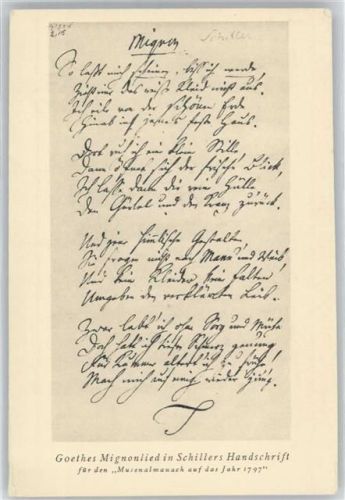 Mignon
Schiller
So laßt mich scheinen, biß ich werde,
Zieht mir das weiße Kleid nicht aus.
Ich eile von der schönen Erde
Hinab in jenes feste Haus.
Dort ruh ich eine kleine Stille,
Dann öfnet sich der frische Blick,
Ich lasse dann die reine Hülle
Den Gürtel und den Kranz zurück.
Und jene himmlische Gestalten,
Sie fragen nicht nach Mann und Weib,
Und keine Kleider, keine Falten
Umgeben den verklärten Leib.
Zwar lebt' ich ohne Sorg und Mühe
Doch fühlt ich tiefen Schmerz genung
Für Kummer altert ich zu frühe,
Mach mich auf ewig wieder jung.
Goethes Mignonlied in Schillers Handschrift
für den „Musenalmanach auf das Jahr 1797"